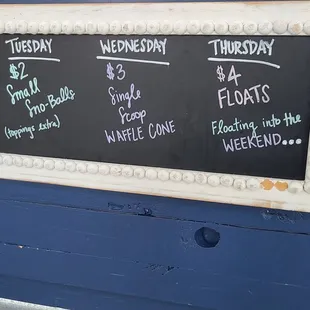 TUESDAY
$2
Small
Sno-Balls
(toppings extra)
WEDNESDAY
$3
Single
Scoop
WAFFLE CONE
THURSDAY
$4
FLOATS
Floating into the
WEEKEND...